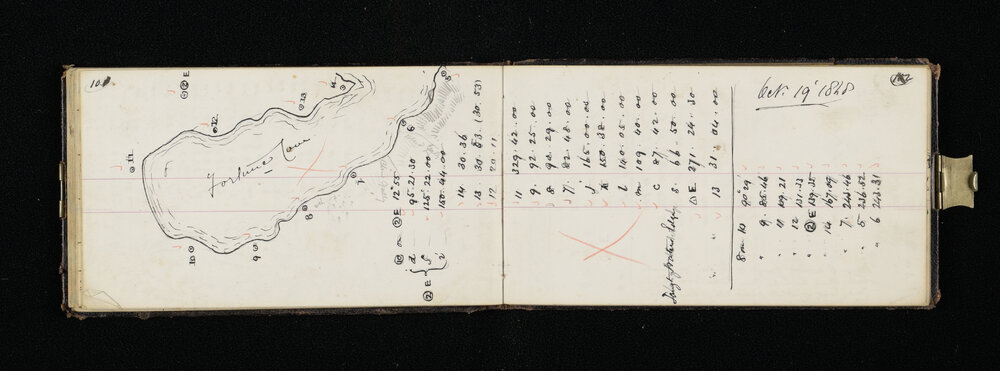 101
E
13
12
11
Fortune Cove
6
7
8
9
10
E 12°55
d 95.21.30
E f 125.22.00
i 150.44.00
14 30.36
13 30.53 (30.53)
12 29 11
11 329.42.00
9. 92.25.00
8 90.29.00
7. 82.48.00
j 165.00.00
k 150.38.00
l 140.05.00
m 109 40.00
c 87.42.00
s. 66.50.00
△E 371.24.30
13 31.04.00
102
Oct. 19th 1848
8 on 10 90°29'
" 9. 85.46
" 11 109.21
" 12 131.33
" E 139.35
" 14 167.09
" 7. 243.46
" 5 236.52
" 6 243.31